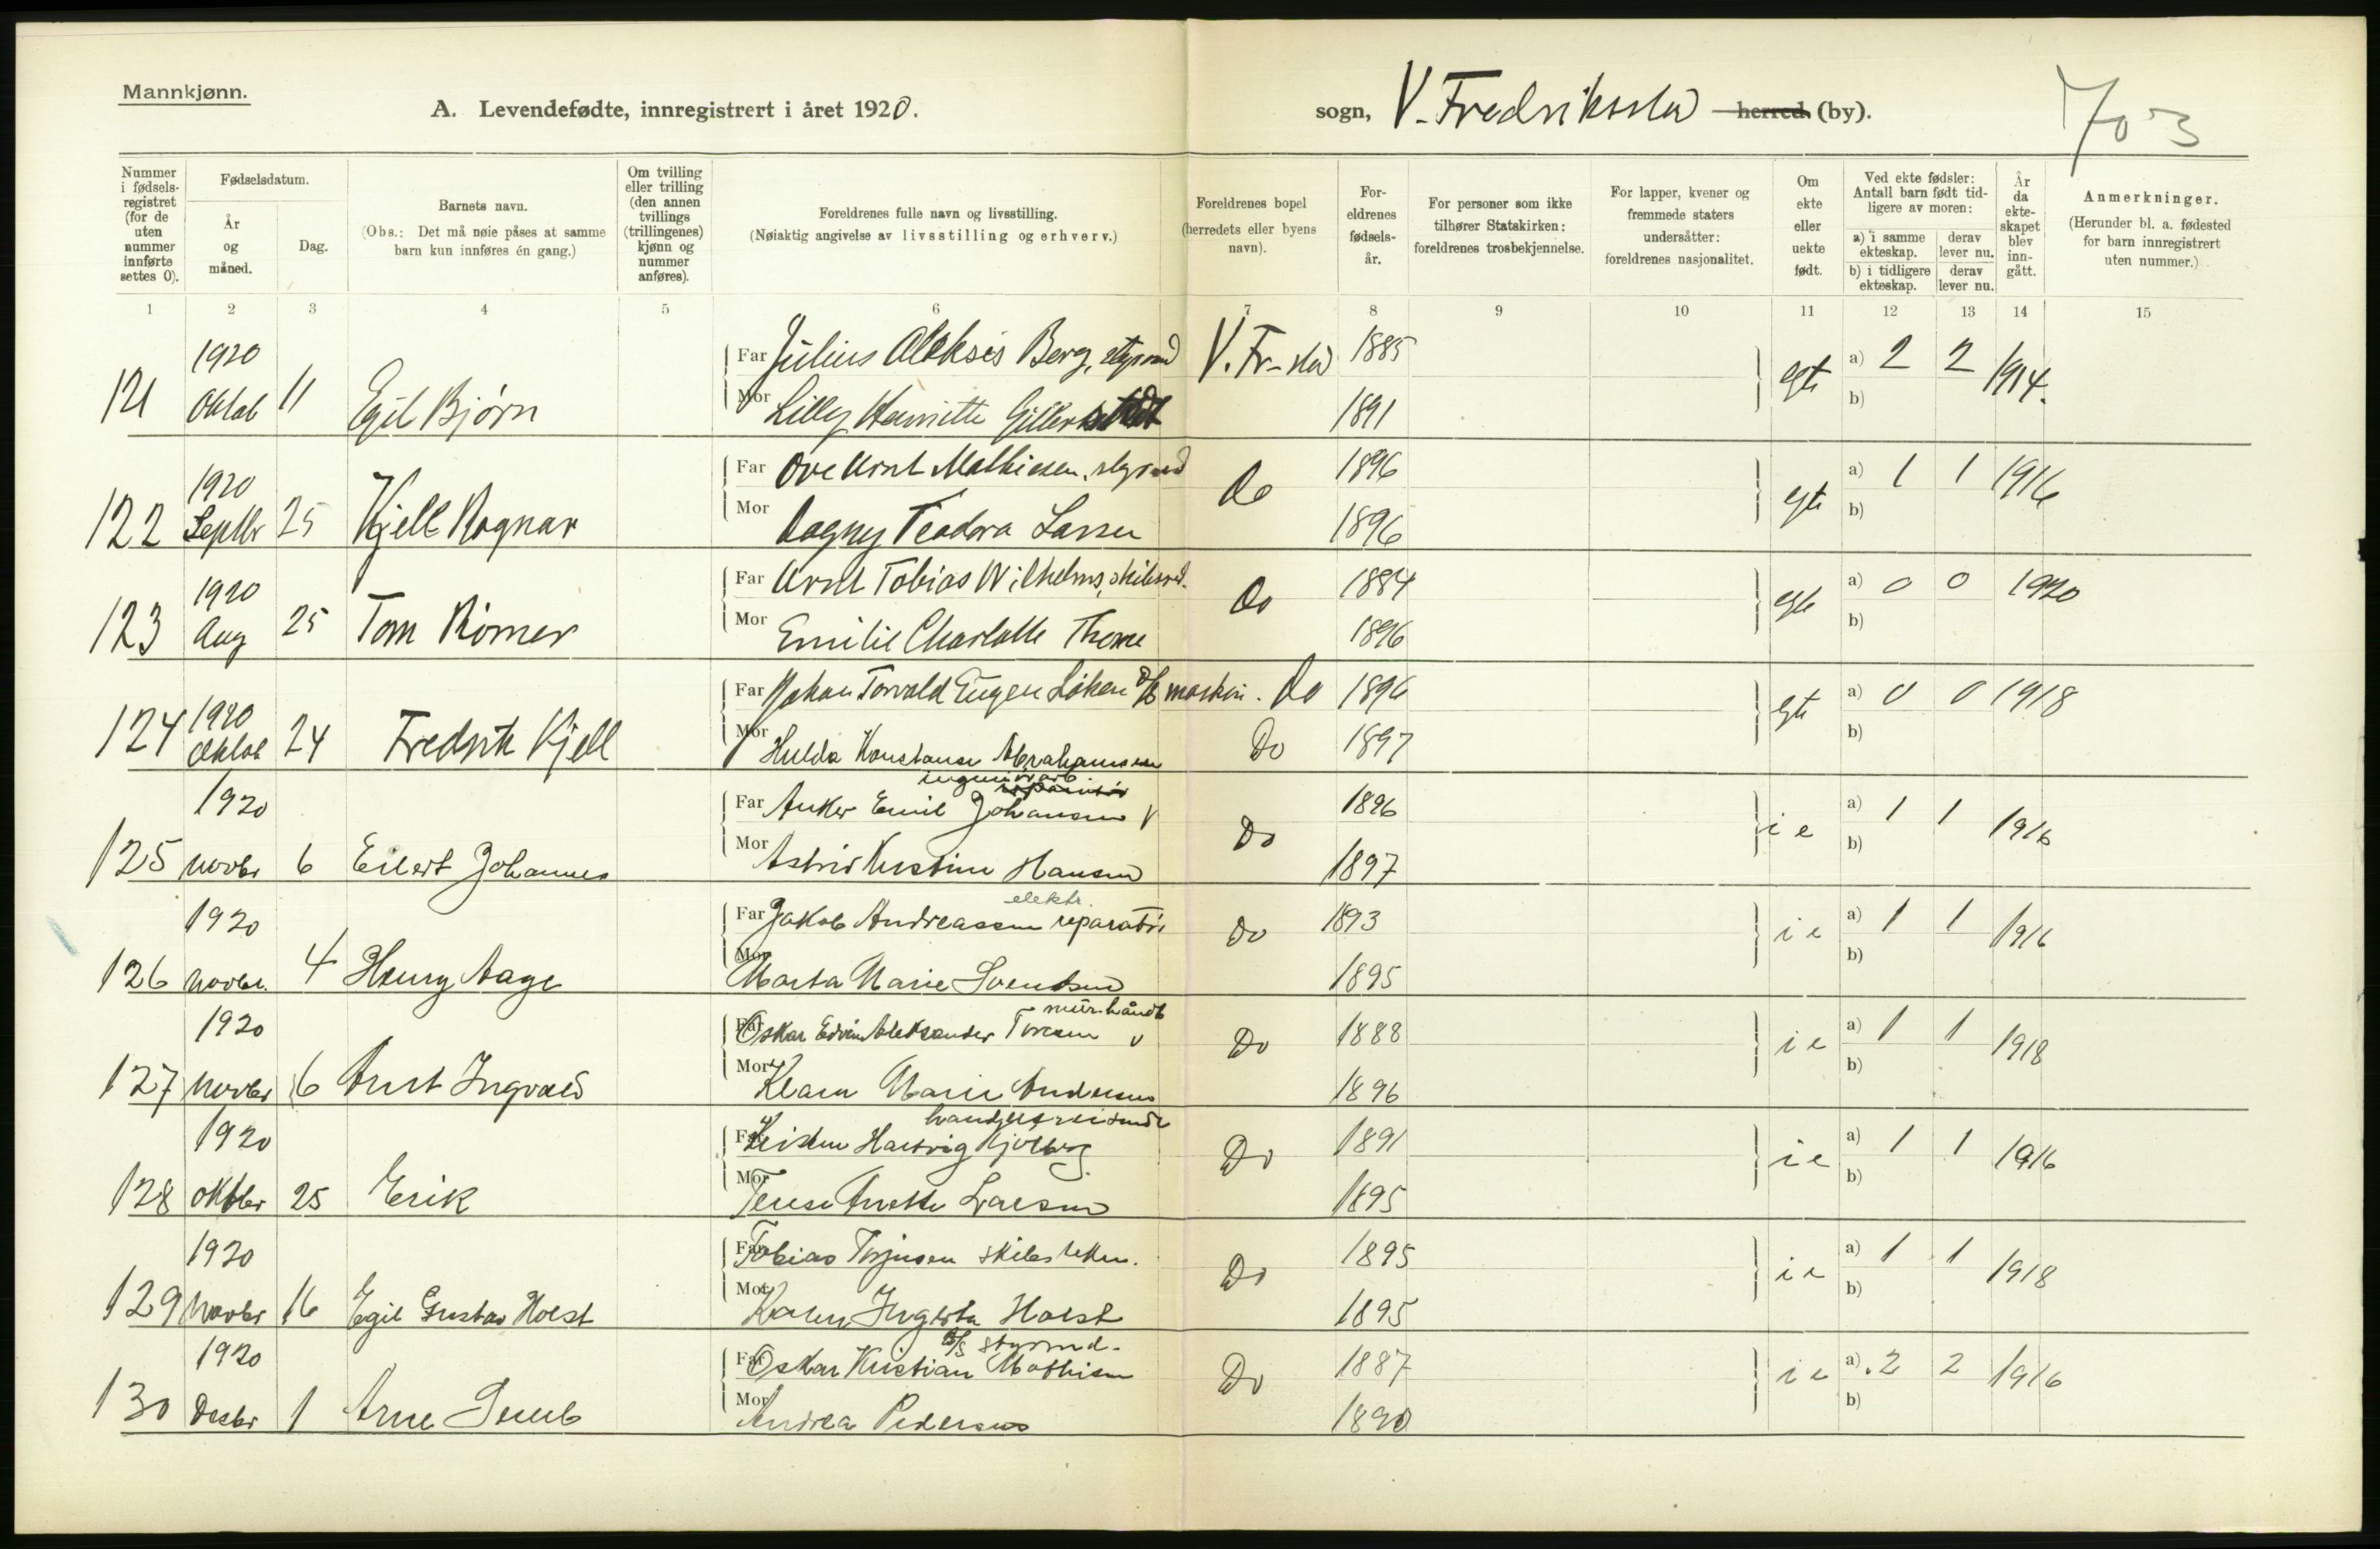 Mannkjønn.
A. Levendefødte, innregistrert i året 1920.
sogn, V. Fredriksstad herred. (by).
703
Nummer i fødselsregistret (for de uten nummer innførte settes 0).
Fødselsdatum.
År og måned.
Dag.
Barnets navn.
(Obs.: Det må nøie påses at samme barn kun innføres én gang.)
Om tvilling eller trilling (den annen tvillings (trillingenes) kjønn og nummer anføres).
Foreldrenes fulle navn og livsstilling.
(Nøiaktig angivelse av livsstilling og erhverv.)
Foreldrenes bopel (herredets eller byens navn).
Foreldrenes fødselsår.
For personer som ikke tilhører Statskirken: foreldrenes trosbekjennelse.
For lapper, kvener og fremmede staters undersåtter: foreldrenes nasjonalitet.
Om ekte eller uekte født.
Ved ekte fødsler: Antall barn født tidligere av moren:
a) i samme ekteskap. derav lever nu.
b) i tidligere ekteskap. derav lever nu.
År da ekteskapet blev inngått.
Anmerkninger.
(Herunder bl. a. fødested for barn innregistrert uten nummer.)
1 2 3 4 5 6 7 8 9 10 11 12 13 14 15
1920 Far Julius Aleksis Berg, styrmd V. Fr-stad 1885 a) 2 2 1914.
121 Oktob 11 Egil Bjørn Mor Lilly Harriette 1891 egte b)
1920 Far Ove Arnt Mathiesen, styrmd Do 1896 a) 1 1 1916
122 Septbr 25 Kjell Ragnar Mor Dagny Teodora Larsen 1896 egte b)
1920 Far Arnt Tobias Wilhelms, skibsrd. Do 1884 a) 0 0 1920
123 Aug 25 Tom Rømer Mor Emilie Charlotte Thorne 1896 egte b)
1920 Far Johan Torvald Eugen Løken D/S maskin. Do 1896 a) 0 0 1918
124 Oktob 24 Fredrik Kjell Mor Hulda Konstanse Abrahamsen Do 1897 egte b)
1920 Far Anker Emil Johansen Do 1896 i e a) 1 1 1916
125 Novbr 6 Eilert Johannes Mor Astrid Kristine Hansen 1897 b)
elektr.
1920 Far Jakob Andreassen reparatør Do 1893 i e a) 1 1 1916
126 Novbr. 4 Henry Aage Mor Marta Marie Svendsen 1895 b)
murhåndl
1920 Far Oskar Edvin Aleksander Toresen Do 1888 i e a) 1 1 1918
127 Novbr 6 Arnt Ingvald Mor Klara Marie Andersen 1896 b)
handelsreisende
1920 Far Kristen Hartvig Kjølberg Do 1891 i e a) 1 1 1916
128 Oktbr 25 Erik Mor Terese Anette Larsen 1895 b)
1920 Far Tobias Torjusen skibstekn. Do 1895 i e a) 1 1 1918
129 Novbr 16 Egil Gustav Holst Mor Karen Ingerta Holst 1895 b)
D/S styrmd.
1920 Far Oskar Kristian Mathisen Do 1887 i e a) 2 2 1916
130 Desbr 1 Arne Mor Andrea Pedersen 1890 b)